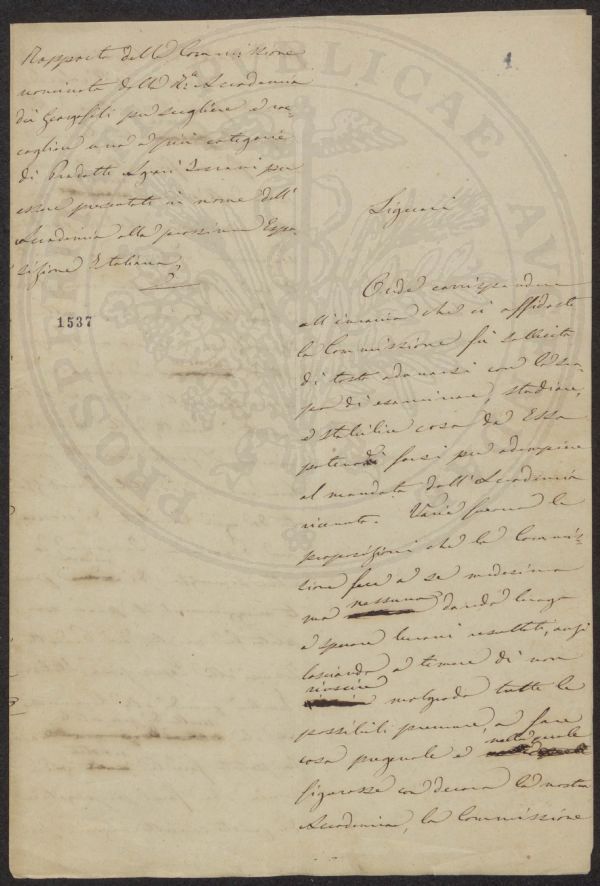 1
Rapporto della Commissione
nominata dalla R.a Accademia
dei Georgofili per scegliere e rac-
cogliere una o più categorie
di Prodotti Agrari Toscani per
essere presentati in nome dell'
Accademia alla prossima Espo
sizione Italiana
1537
Signori
Onde corrispondere
all'incarico che ci affidaste
la Commissione fù sollecita
di tosto adunarsi con lo sco
po di esaminare, studiare,
e stabilire cosa da Essa
potesse farsi per adempiere
al mandato dall'Accademia
ricevuto. Varie furono le
proposizioni che la Commis-
sione fece a se medesima
ma nessuna dando luogo
a sperare buoni resultati, anzi
lasciando a temere di non
riescire malgrado tutte le
possibili premure, a fare
cosa pregevole e nella quale
figurasse con decoro la nostra
Accademia, la Commissione
PROSPERITATI PUBLICAE AU